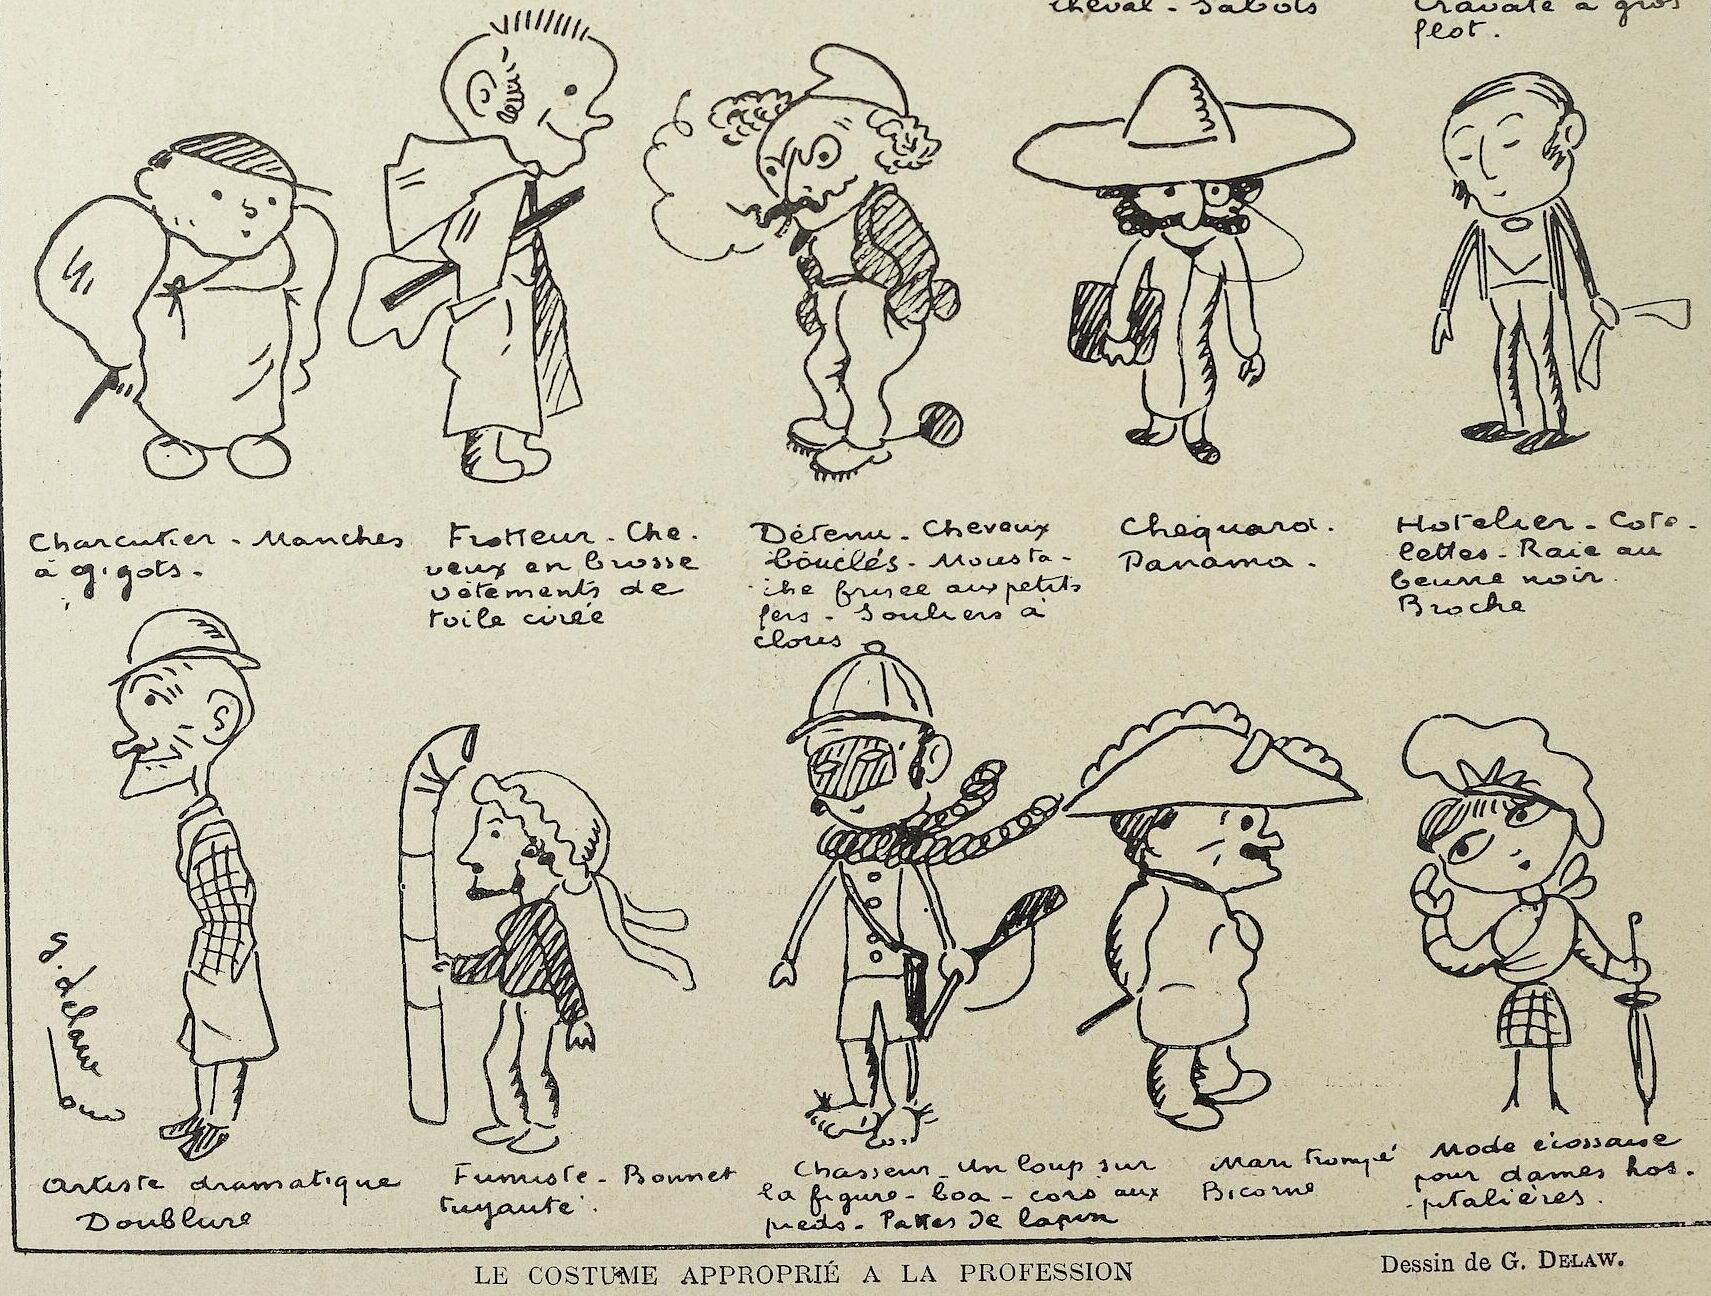 cheval - Sabots
Cravate à gros
flot.
Charcutier - Manches
à gigots.
Frotteur - Che-
veux en brosse
vêtements de
toile cirée
Détenu - Cheveux
bouclés - Mousta-
che frisée aux petits
fers - Souliers à
clous
Chéquard.
Panama.
Hotelier - Cote-
lettes - Raie au
beurre noir.
Broche
G. delaw
Artiste dramatique
Doublure
Fumiste - Bonnet
tuyauté.
Chasseur - Un loup sur
la figure - boa - cors aux
pieds - Pattes de lapin
Mari trompé
Bicorne
Mode écossaise
pour dames hos-
pitalières.
LE COSTUME APPROPRIÉ A LA PROFESSION
Dessin de G. DELAW.